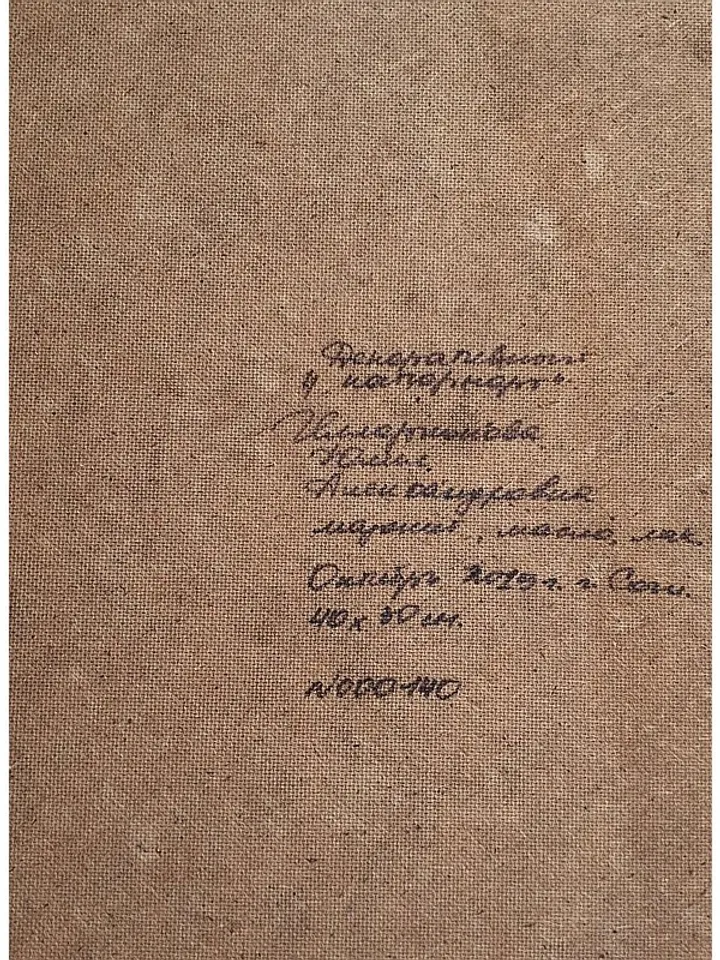 Декоративный
"натюрморт"
Илларионова
Юлия
Александровна
масло, лак
Октябрь 2019 г. г. Сочи.
40х30 см.
N000-140